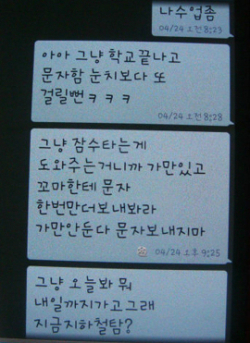 나수업좀
04/24 오전 8:23
아아 그냥 학교끝나고
문자함 눈치보다 또
걸릴뻔ㅋㅋㅋ
04/24 오전 8:28
그냥 잠수타는게
도와주는거니까 가만있고
꼬마한테 문자
한번만더보내봐라
가만안둔다 문자보내지마
04/24 오후 9:25
그냥 오늘봐 뭐
내일까지가고그래
지금지하철탐?